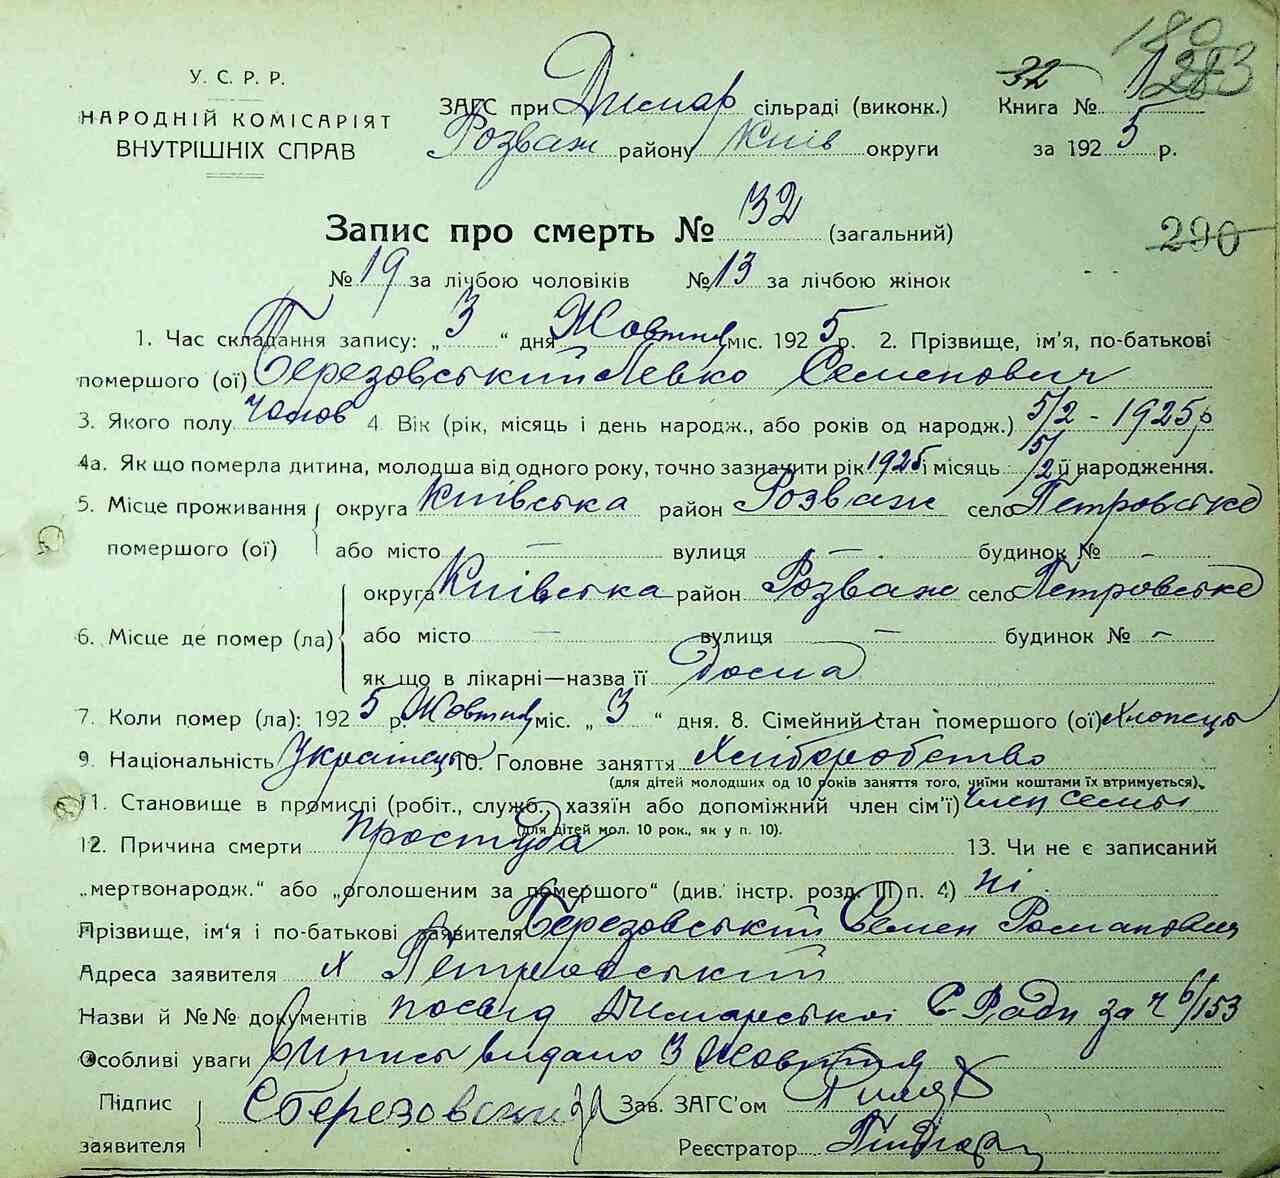 У. С. Р. Р.
НАРОДНІЙ КОМІСАРІЯТ
ВНУТРІШНІХ СПРАВ
ЗАГС при Димар сільраді (виконк.)
Розваж району Київ округи
32
Книга №
за 1925 р.
290
Запис про смерть № 32 (загальний)
№ 19 за лічбою чоловіків № 13 за лічбою жінок
1. Час складання запису: „ 3 “ дня Жовтня міс. 1925 р. 2. Прізвище, ім'я, по-батькові
помершого (ої) Березовський Левко Семенович
3. Якого полу Чолов 4. Вік (рік, місяць і день народж., або років од народж.) 5/2 - 1925 р
4а. Як що померла дитина, молодша від одного року, точно зазначити рік 1925 і місяць 5/2 її народження.
5. Місце проживання округа Київська район Розваж село Петровське
помершого (ої) або місто — вулиця — будинок № -
округа Київська район Розваж село Петровське
6. Місце де помер (ла) або місто — вулиця — будинок № -
як що в лікарні—назва її дома
7. Коли помер (ла): 1925 р. Жовтня міс. „ 3 “ дня. 8. Сімейний стан помершого (ої) хлопець
9. Національність Українець 10. Головне заняття Хліборобство
(для дітей молодших од 10 років заняття того, чиїми коштами їх втримується).
11. Становище в промислі (робіт., служб., хазяїн або допоміжний член сім'ї) член семьї
(для дітей мол. 10 рок., як у п. 10).
12. Причина смерти простуда 13. Чи не є записаний
„мертвонародж.“ або „оголошеним за помершого“ (див. інстр. розд. III п. 4) ні
Прізвище, ім'я і по-батькові заявителя Березовський Семен Романович
Адреса заявителя х Петровський
Назви й №№ документів посвід Димарської С Ради за ч 6/153
Особливі уваги Випись видано 3 Жовтня
Підпис
заявителя
С Березовский
Зав. ЗАГС'ом
Реєстратор